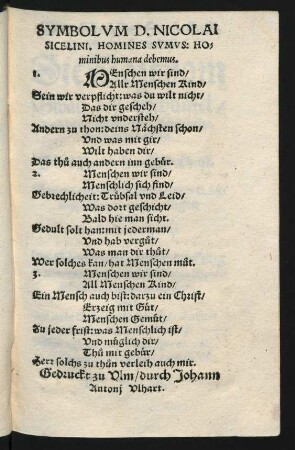 SYMBOLVM D. NICOLAI
SICELINI. HOMINES SVMVS: HO-
minibus humana debemus.
1. MEnschen wir sind/
Allr Menschen Kind/
Sein wir verpflicht: was du wilt nicht/
Das dir gescheh/
Nicht vndersteh/
Andern zu thon: deins Nächsten schon/
Vnd was mit gir/
Wilt haben dir/
Das thů auch andern inn gebür.
2. Menschen wir sind/
Menschlich sich find/
Gebrechlicheit: Trübsal vnd Leid/
Was dort geschicht/
Bald hie man sicht.
Gedult solt han: mit jederman/
Vnd hab vergüt/
Was man dir thüt/
Wer solches kan/ hat Menschen müt.
3. Menschen wir sind/
All Menschen Kind/
Ein Mensch auch bist: darzu ein Christ/
Erzeig mit Güt/
Menschen Gemüt/
Zu jeder frist: was Menschlich ist/
Vnd müglich dir/
Thů mit gebür/
Herr solchs zu thün verleih auch mir.
Gedruckt zu Vlm/ durch Johann
Antonj Vlhart.